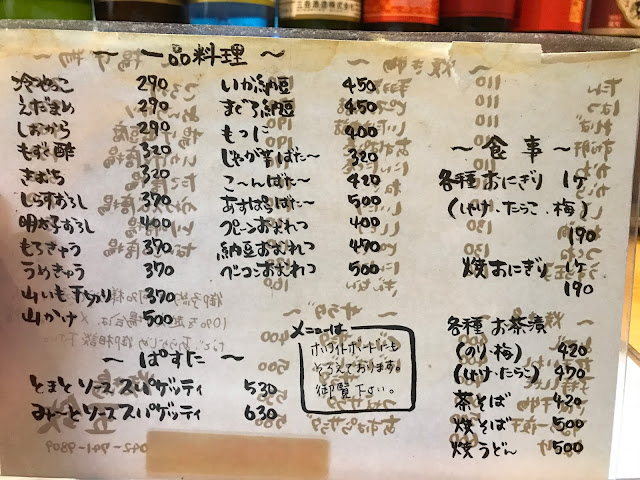 三岳酒造株式会社
～ 一品料理 ～
冷やっこ 290
えだまめ 290
しおから 290
もずく酢 320
きむち 320
しらすおろし 370
明太子おろし 400
もろきゅう 370
うめきゅう 370
山いも千切り 370
山かけ 500
いか納豆 450
まぐろ納豆 450
もつに 400
じゃが芋ばた～ 320
こ～んばた～ 420
あすぱらばた～ 500
プレーンおむれつ 400
納豆おむれつ 470
ベーコンおむれつ 500
～ ぱすた ～
とまとソーススパゲッティ 530
みーとソーススパゲッティ 630
メニューは
ホワイトボードにも
そろえております。
御覧下さい。
～ 食事 ～
各種おにぎり 1ヶ
(しゃけ・たらこ・梅)
190
焼おにぎり 1ヶ
190
各種 お茶漬
(のり・梅) 420
(しゃけ・たらこ) 470
茶そば 420
焼そば 500
焼うどん 500
042-741-9809